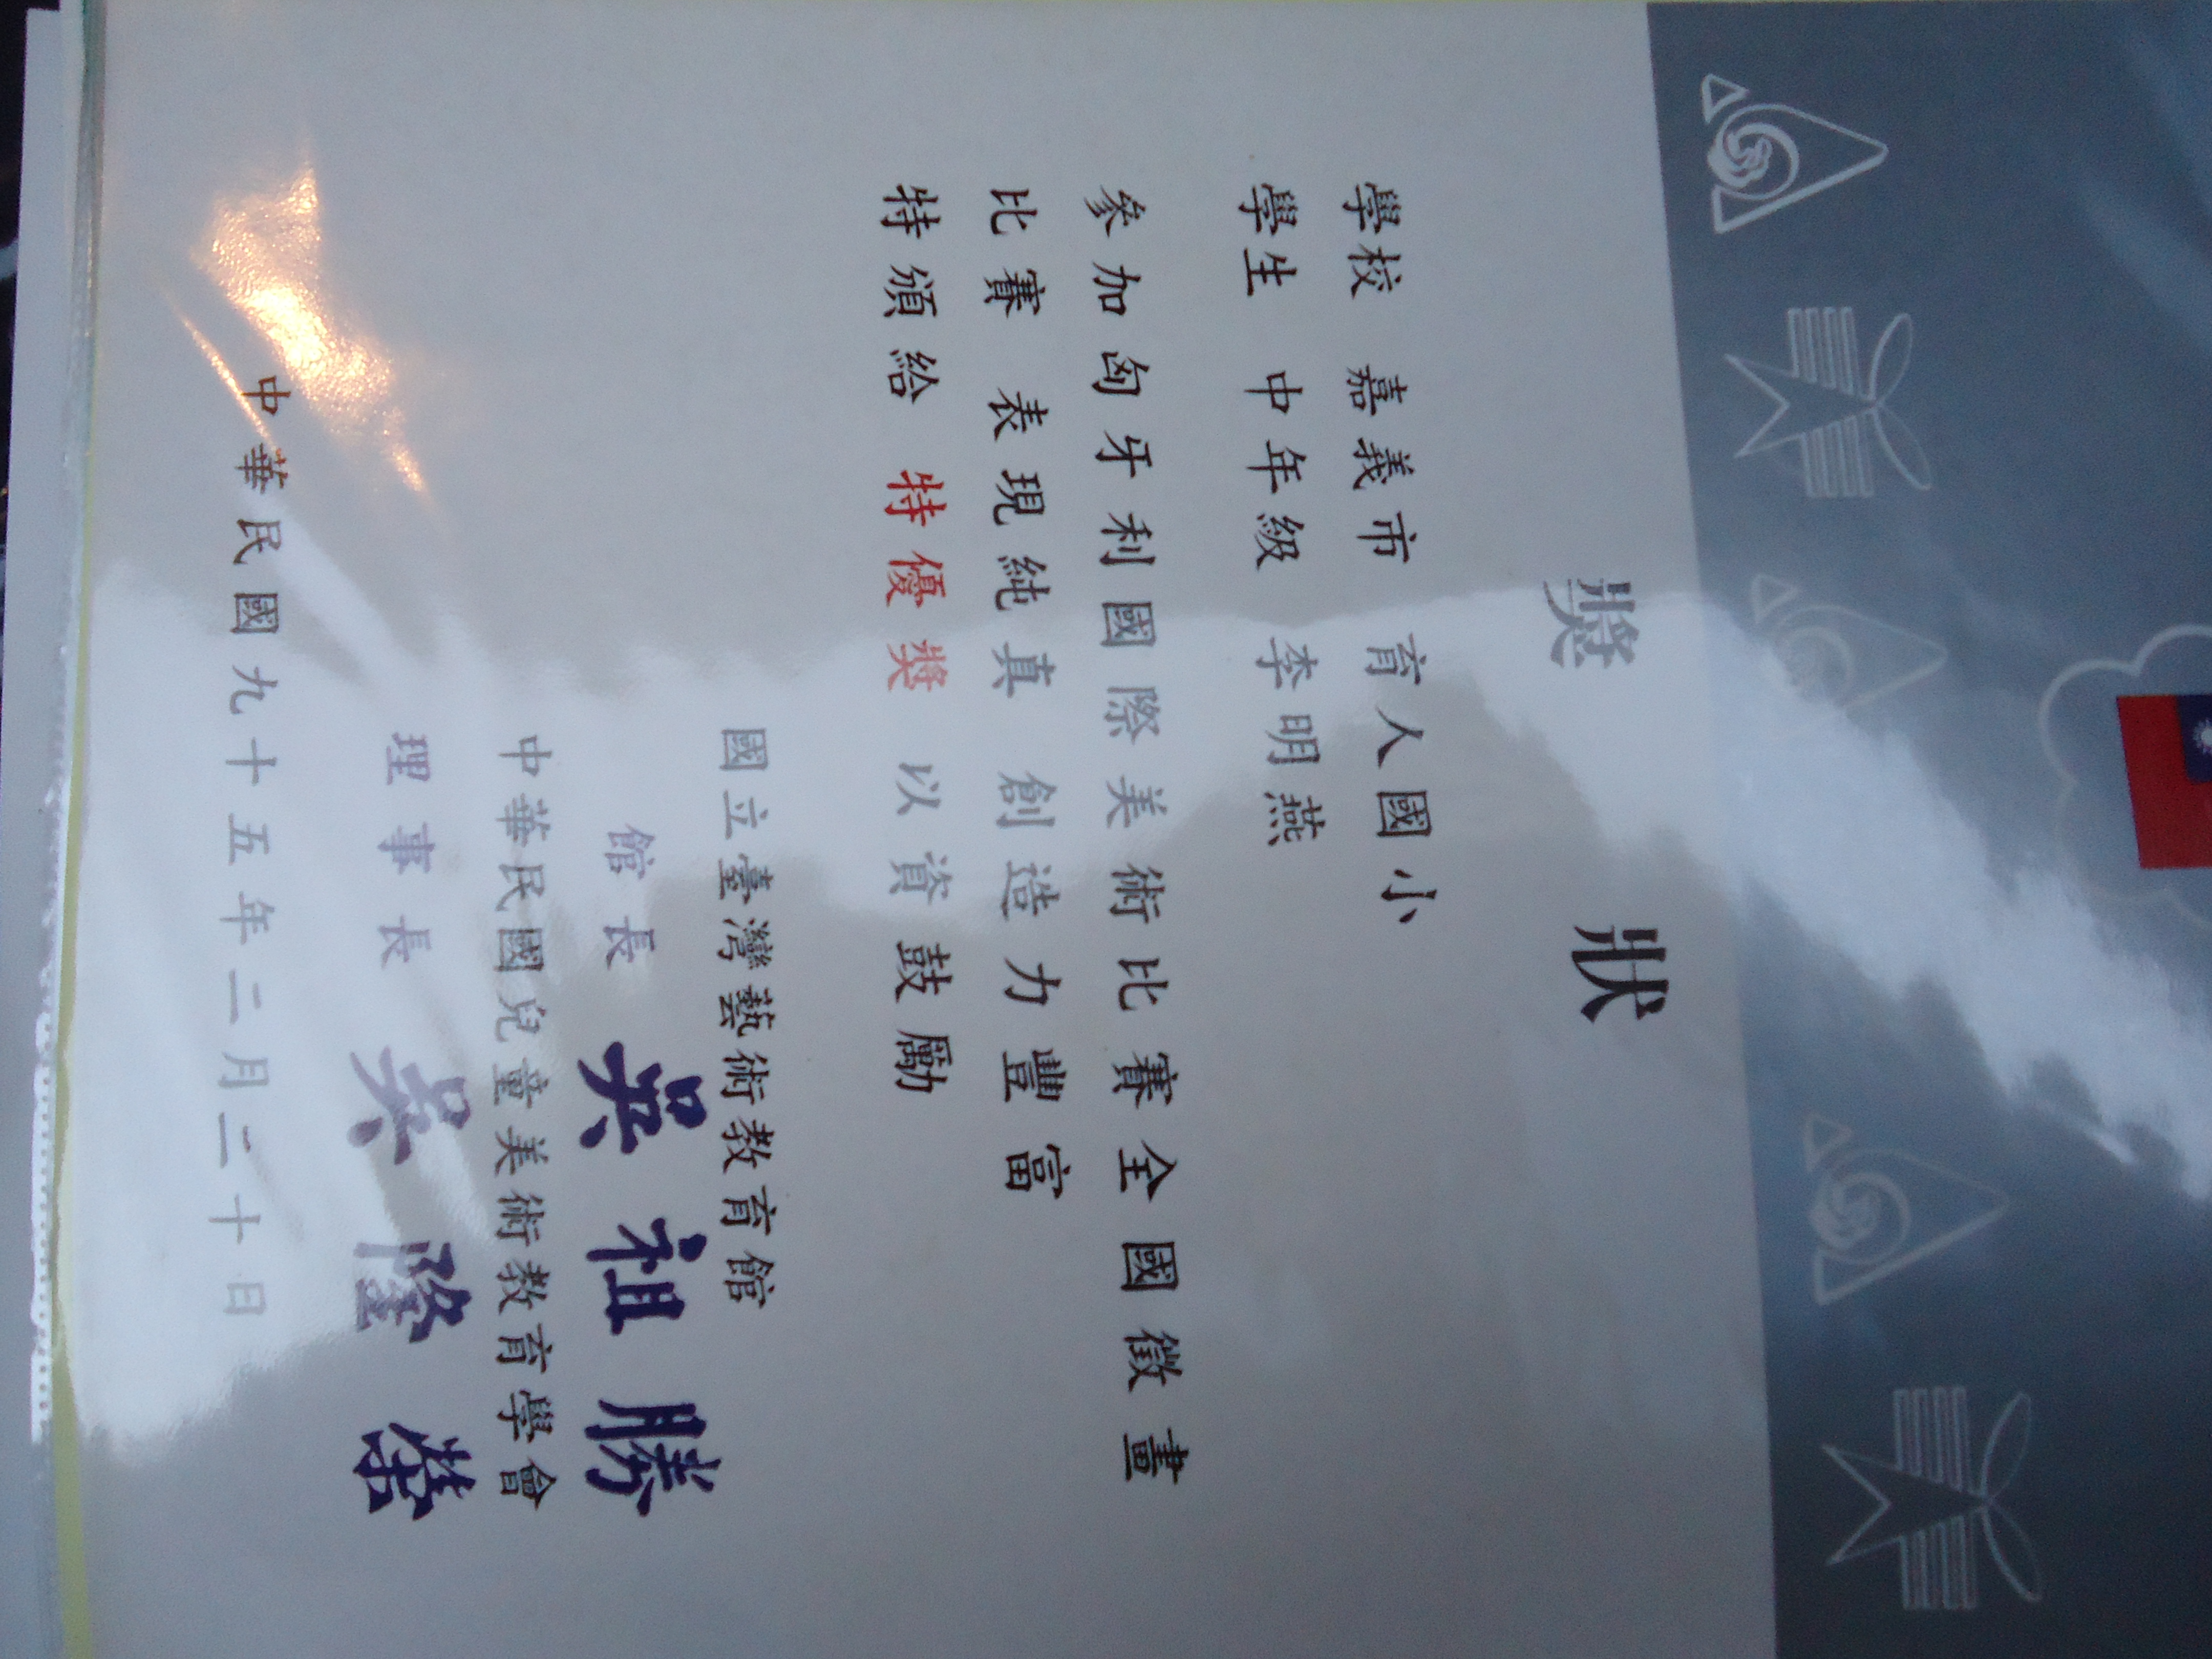 獎 狀
學校 嘉義市 育人國小
學生 中年級 李明燕
參加匈牙利國際美術比賽全國徵畫
比賽 表現純真 創造力豐富
特頒給 特優獎 以資鼓勵
國立臺灣藝術教育館
館長 吳祖勝
中華民國兒童美術教育學會
理事長 吳隆榮
中華民國九十五年二月二十日